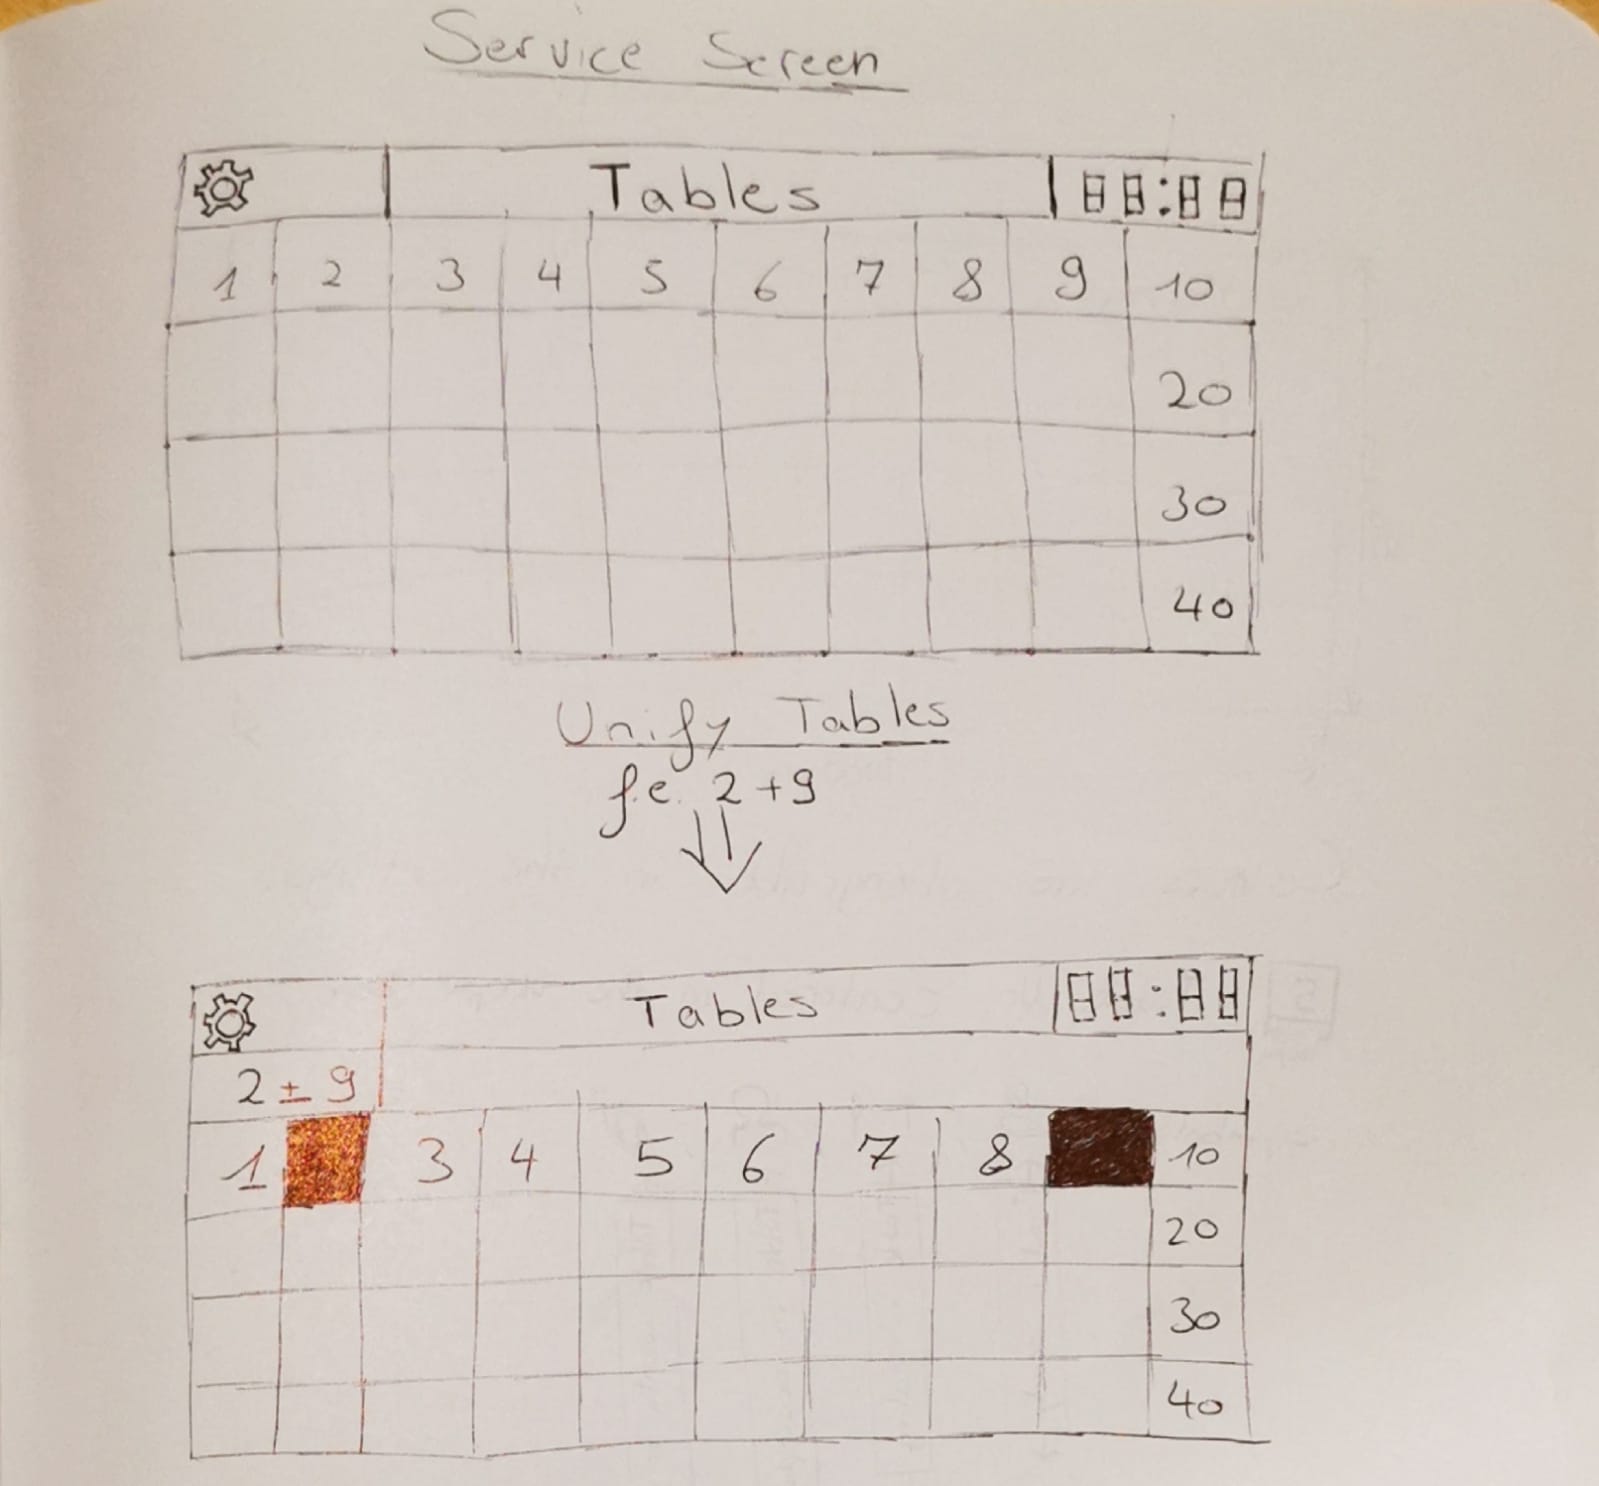 Service Screen
Tables 88:88
1 2 3 4 5 6 7 8 9 10
20
30
40
Unify Tables
f.e. 2+9
Tables 88:88
2 + 9
1 3 4 5 6 7 8 10
20
30
40